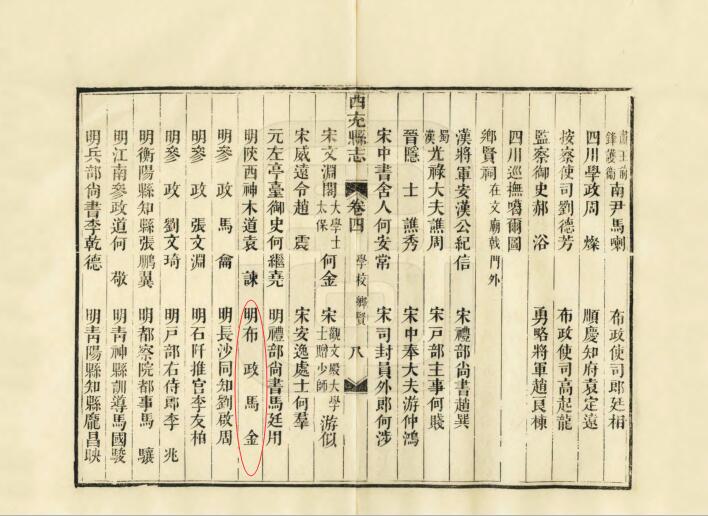 王前鋒護衞南尹馬喇 布政使司郎廷相
四川學政周燦 順慶知府袁定遠
按察使司劉德芳 布政使司高起龍
監察御史郝浴 勇略將軍趙良棟
四川巡撫噶爾圖
鄉賢祠在文廟戟門外
漢將軍安漢公紀信 宋禮部尚書趙巽
蜀漢光祿大夫譙周 宋戶部主事何賤
晉隱士譙秀 宋中奉大夫游仲鴻
宋中書舍人何安常 宋司封員外郎何涉
西充縣志 卷四 學校 鄉賢 八
宋文淵閣大學士太保何金 宋觀文殿大學士贈少師游似
宋威遠令趙震 宋安逸處士何羣
元左亭臺御史何繼堯 明禮部尚書馬廷用
明陝西神木道袁諫 明布政馬金
明參政馬侖 明長沙同知劉啟周
明參政張文淵 明石阡推官李友柏
明參政劉文琦 明戶部右侍郎李兆
明衡陽縣知縣張鵬翼 明都察院都事馬驤
明江南參政道何敬 明青神縣訓導馬國駿
明兵部尚書李乾德 明青陽縣知縣龐昌映